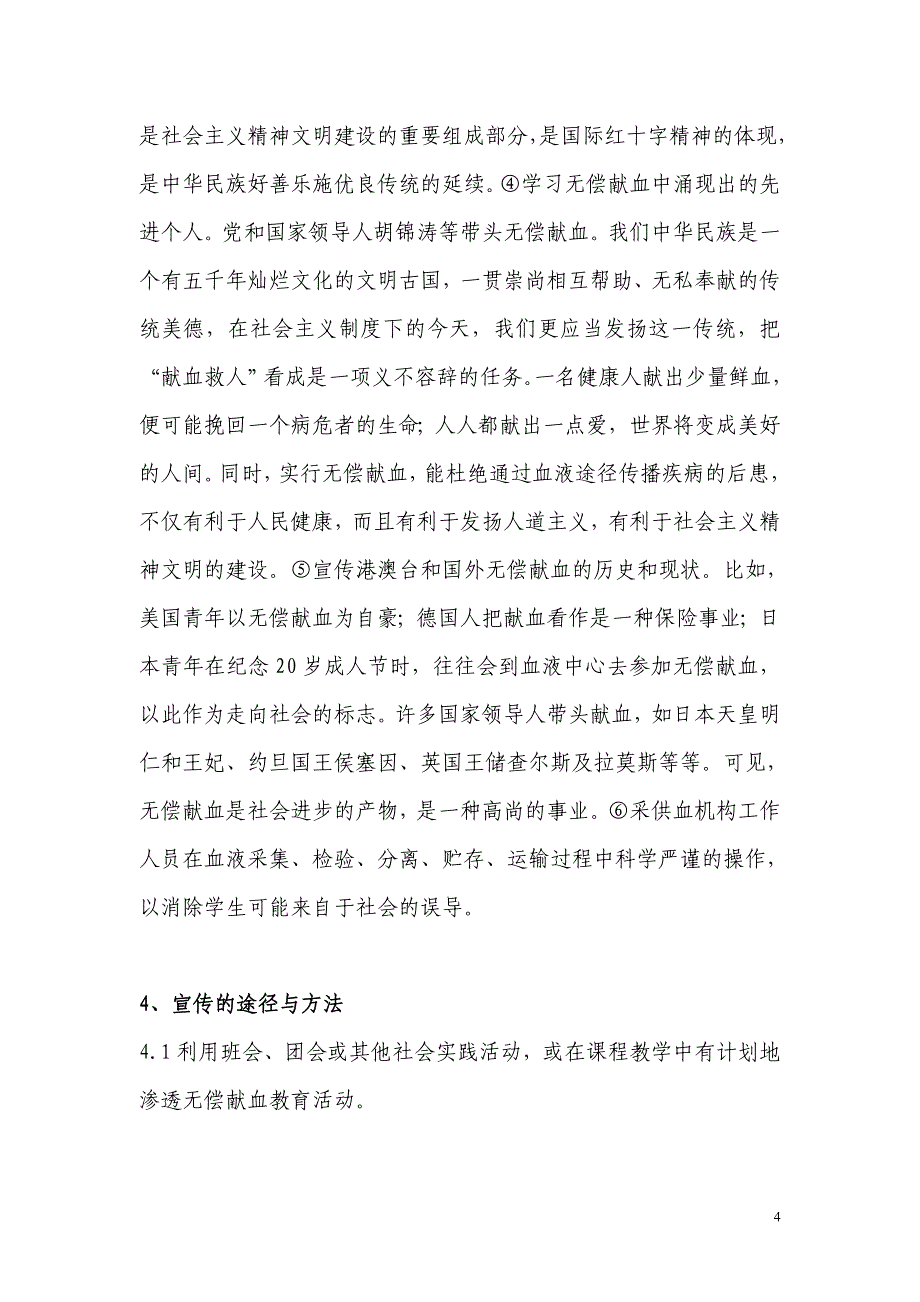 是社会主义精神文明建设的重要组成部分，是国际红十字精神的体现，
是中华民族好善乐施优良传统的延续。④学习无偿献血中涌现出的先
进个人。党和国家领导人胡锦涛等带头无偿献血。我们中华民族是一
个有五千年灿烂文化的文明古国，一贯崇尚相互帮助、无私奉献的传
统美德，在社会主义制度下的今天，我们更应当发扬这一传统，把
“献血救人”看成是一项义不容辞的任务。一名健康人献出少量鲜血，
便可能挽回一个病危者的生命；人人都献出一点爱，世界将变成美好
的人间。同时，实行无偿献血，能杜绝通过血液途径传播疾病的后患，
不仅有利于人民健康，而且有利于发扬人道主义，有利于社会主义精
神文明的建设。⑤宣传港澳台和国外无偿献血的历史和现状。比如，
美国青年以无偿献血为自豪；德国人把献血看作是一种保险事业；日
本青年在纪念 20 岁成人节时，往往会到血液中心去参加无偿献血，
以此作为走向社会的标志。许多国家领导人带头献血，如日本天皇明
仁和王妃、约旦国王侯塞因、英国王储查尔斯及拉莫斯等等。可见，
无偿献血是社会进步的产物，是一种高尚的事业。⑥采供血机构工作
人员在血液采集、检验、分离、贮存、运输过程中科学严谨的操作，
以消除学生可能来自于社会的误导。
4、宣传的途径与方法
4.1 利用班会、团会或其他社会实践活动，或在课程教学中有计划地
渗透无偿献血教育活动。
4